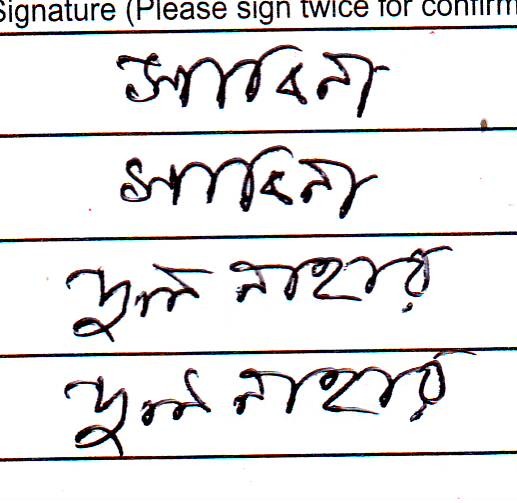 Signature (Please sign twice for confirm
সাবিনা
সাবিনা
নাহার
নাহার